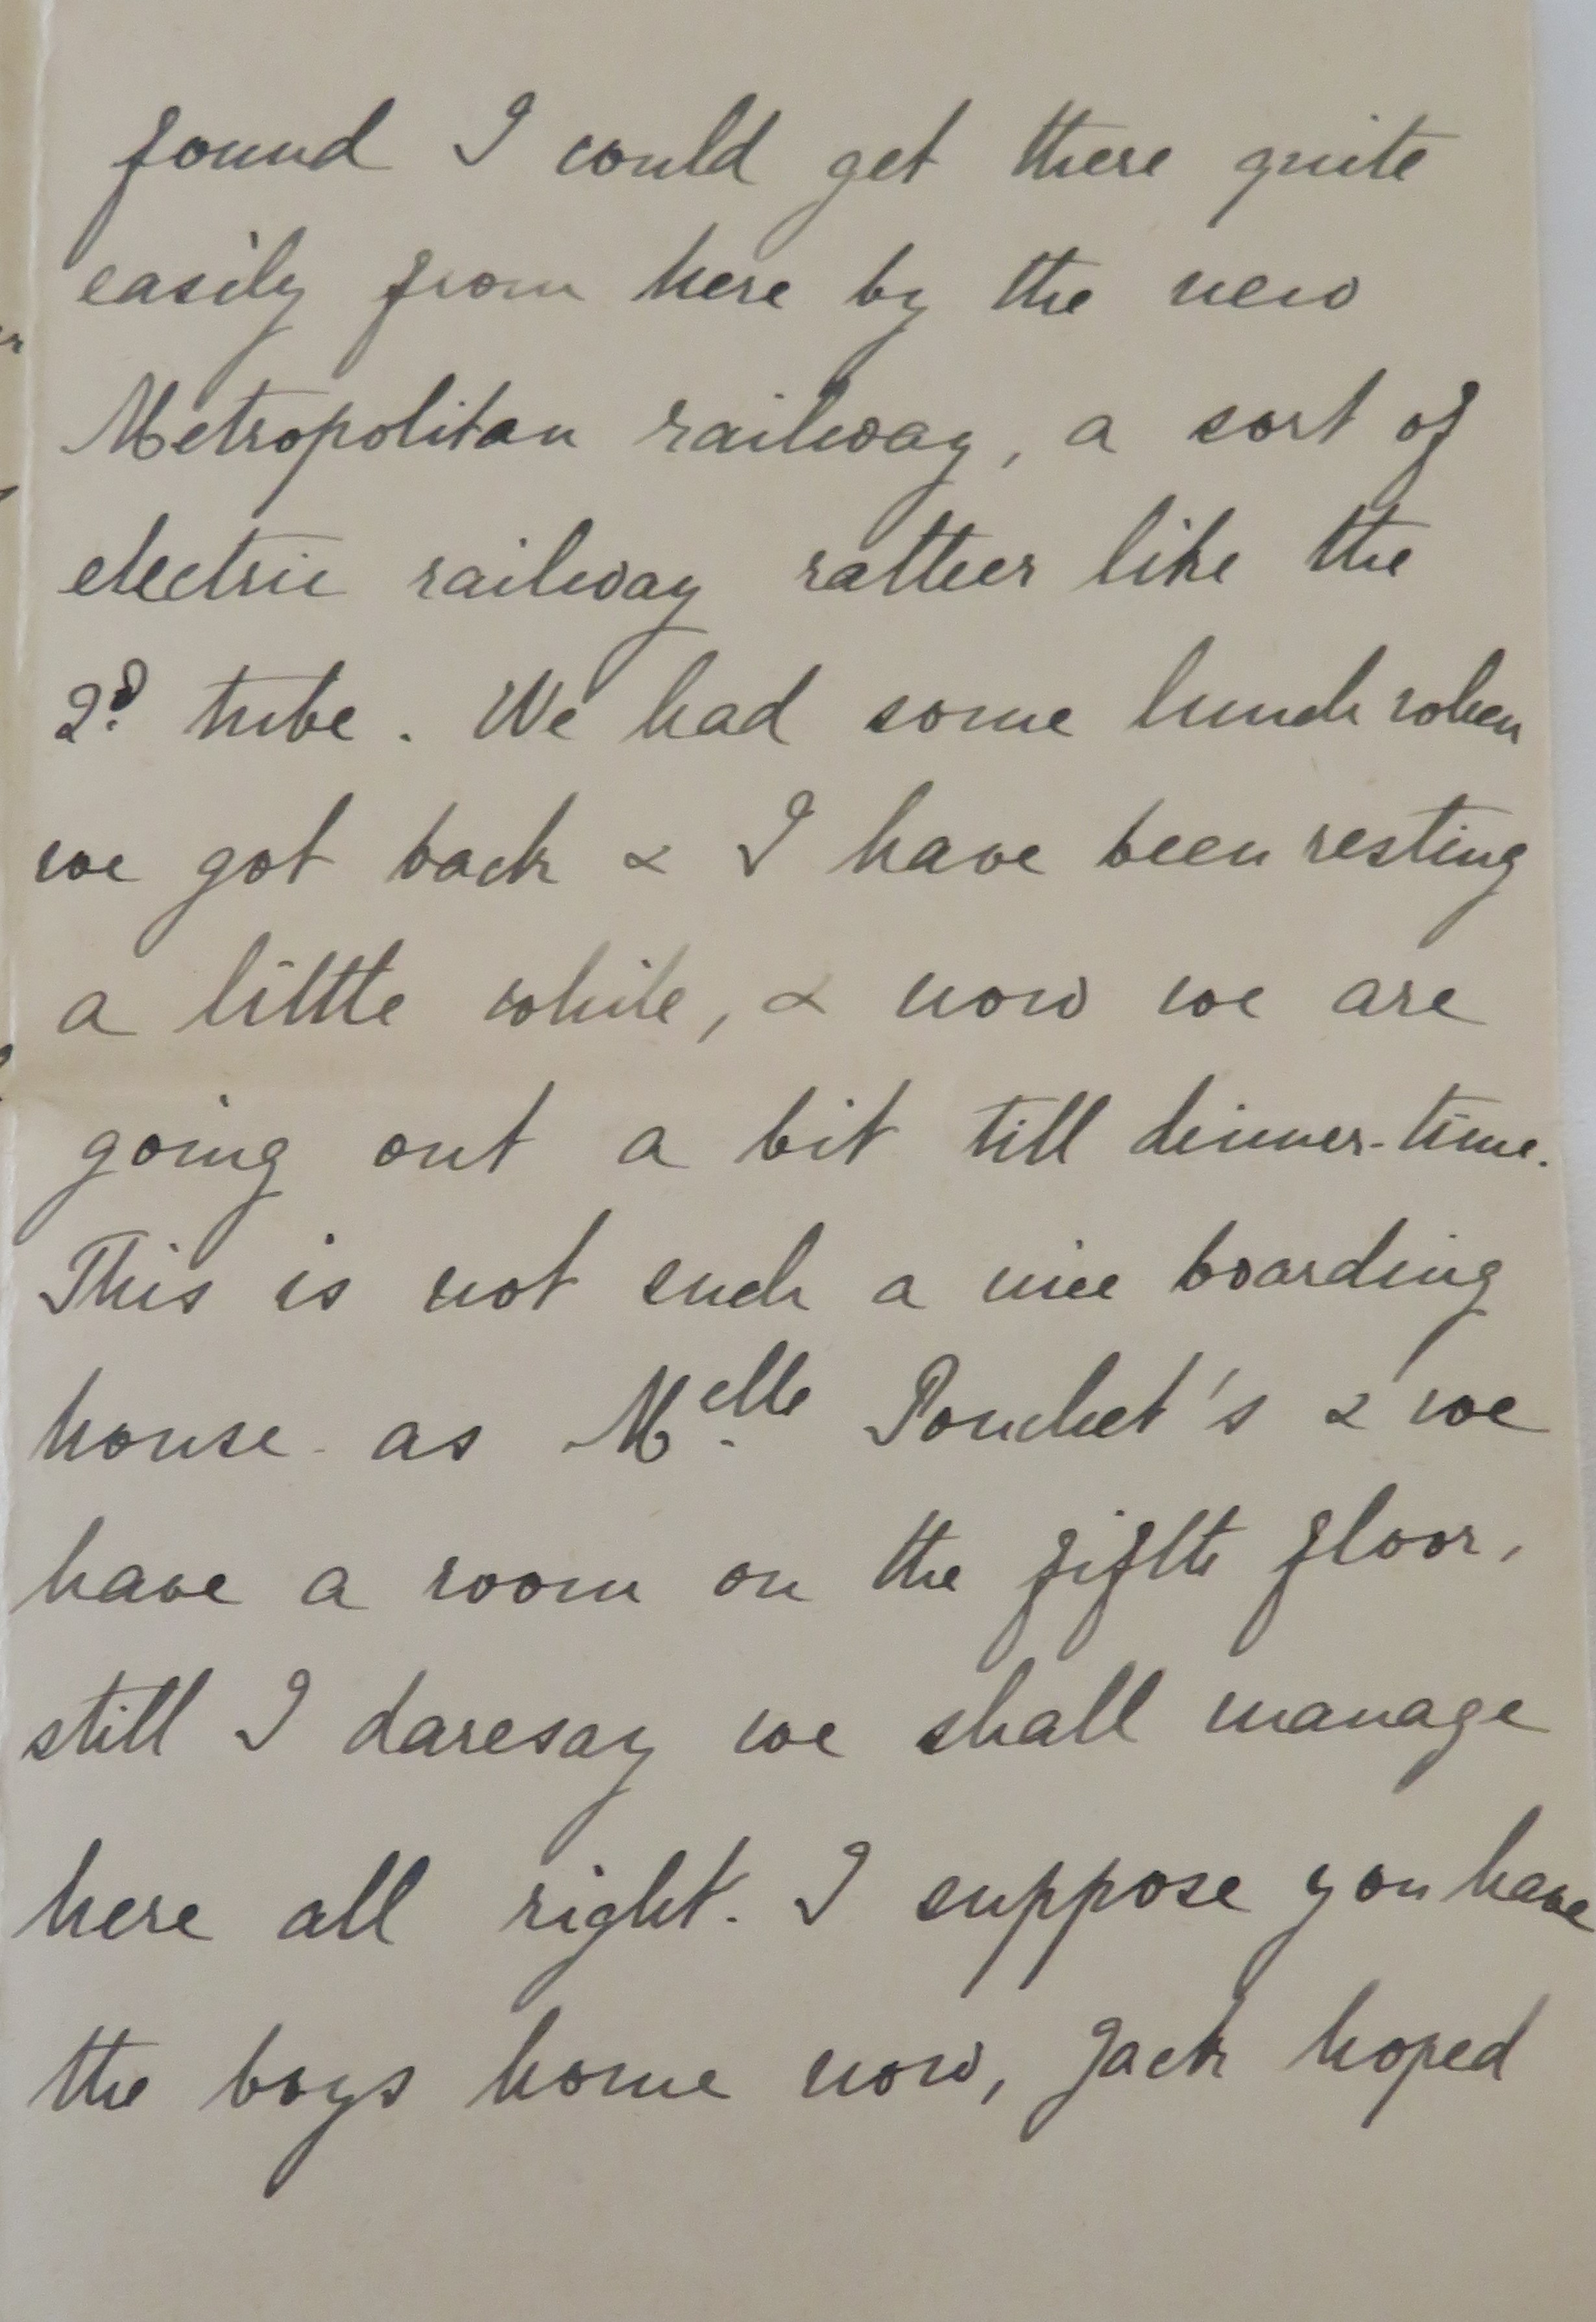 found I could get there quite
easily from here by the new
Metropolitan railway, a sort of
electric railway rather like the
2d. tube. We had some lunch when
we got back & I have been resting
a little while, & now we are
going out a bit till dinner-time.
This is not such a nice boarding
house as Melle. Pouchet's & we
have a room on the fifth floor,
still I daresay we shall manage
here all right. I suppose you have
the boys home now, Jack hoped